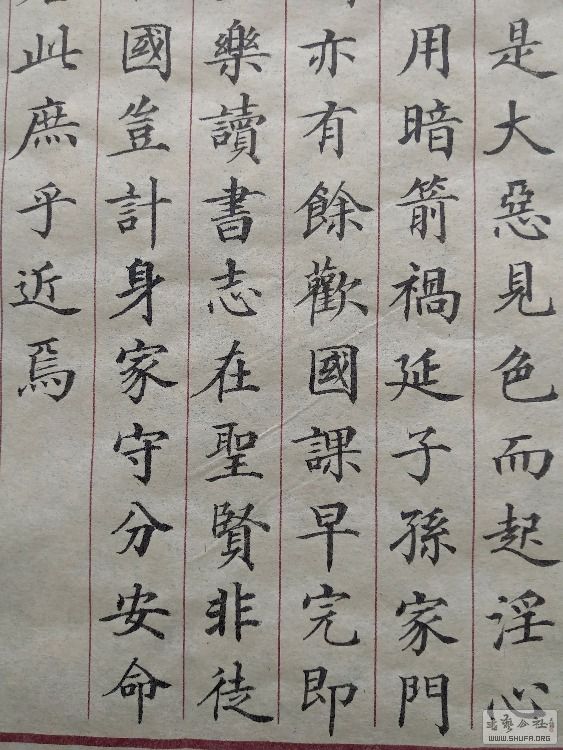 是大惡見色而起淫心
用暗箭禍延子孫家門
亦有餘歡國課早完即
樂讀書志在聖賢非徒
國豈計身家守分安命
此庶乎近焉
WWW.SHUFA.ORG